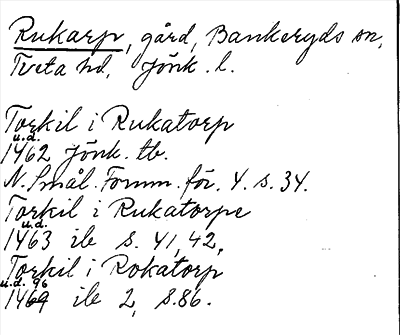 Rukarp, gård, Bankeryds sn,
Tveta hd, Jönk. l.
Torkil i Rukatorp
u.d.
1462 Jönk. tb.
N. Smål. Fornm. för. 4. s. 34.
Torkil i Rukatorpe
u.d.
1463 ib s. 41, 42,
Torkil i Rokatorp
u.d. 96
1469 ib 2, s.86.